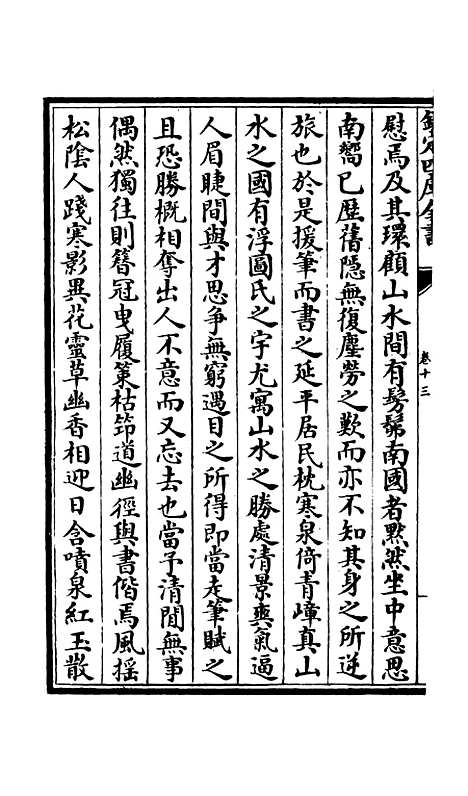 欽定四庫全書
卷十三
慰焉及其環顧山水間有髣髴南國者黙然坐中意思
南嚮已歴舊隠無復塵勞之歎而亦不知其身之所逆
旅也於是援筆而書之延平居民枕寒泉倚青嶂真山
水之國有浮圖氏之宇尤寓山水之勝處清景爽氣逼
人眉睫間與才思争無窮遇目之所得即當走筆賦之
且恐勝概相奪出人不意而又忘去也當予清閒無事
偶然獨往則簪冠曳履策枯筇道幽徑與書偕焉風揺
松隂人踐寒影異花靈草幽香相迎日含噴泉紅玉散